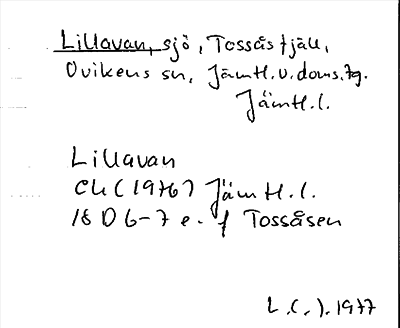 Lillavan, sjö, Tossåsfjäll,
Ovikens sn, Jämtl.v.doms.tg.
Jämtl.l.
Lillavan
Ek (1976) Jämtl.l.
18 D 6-7 e-f Tossåsen
L.(.).1977